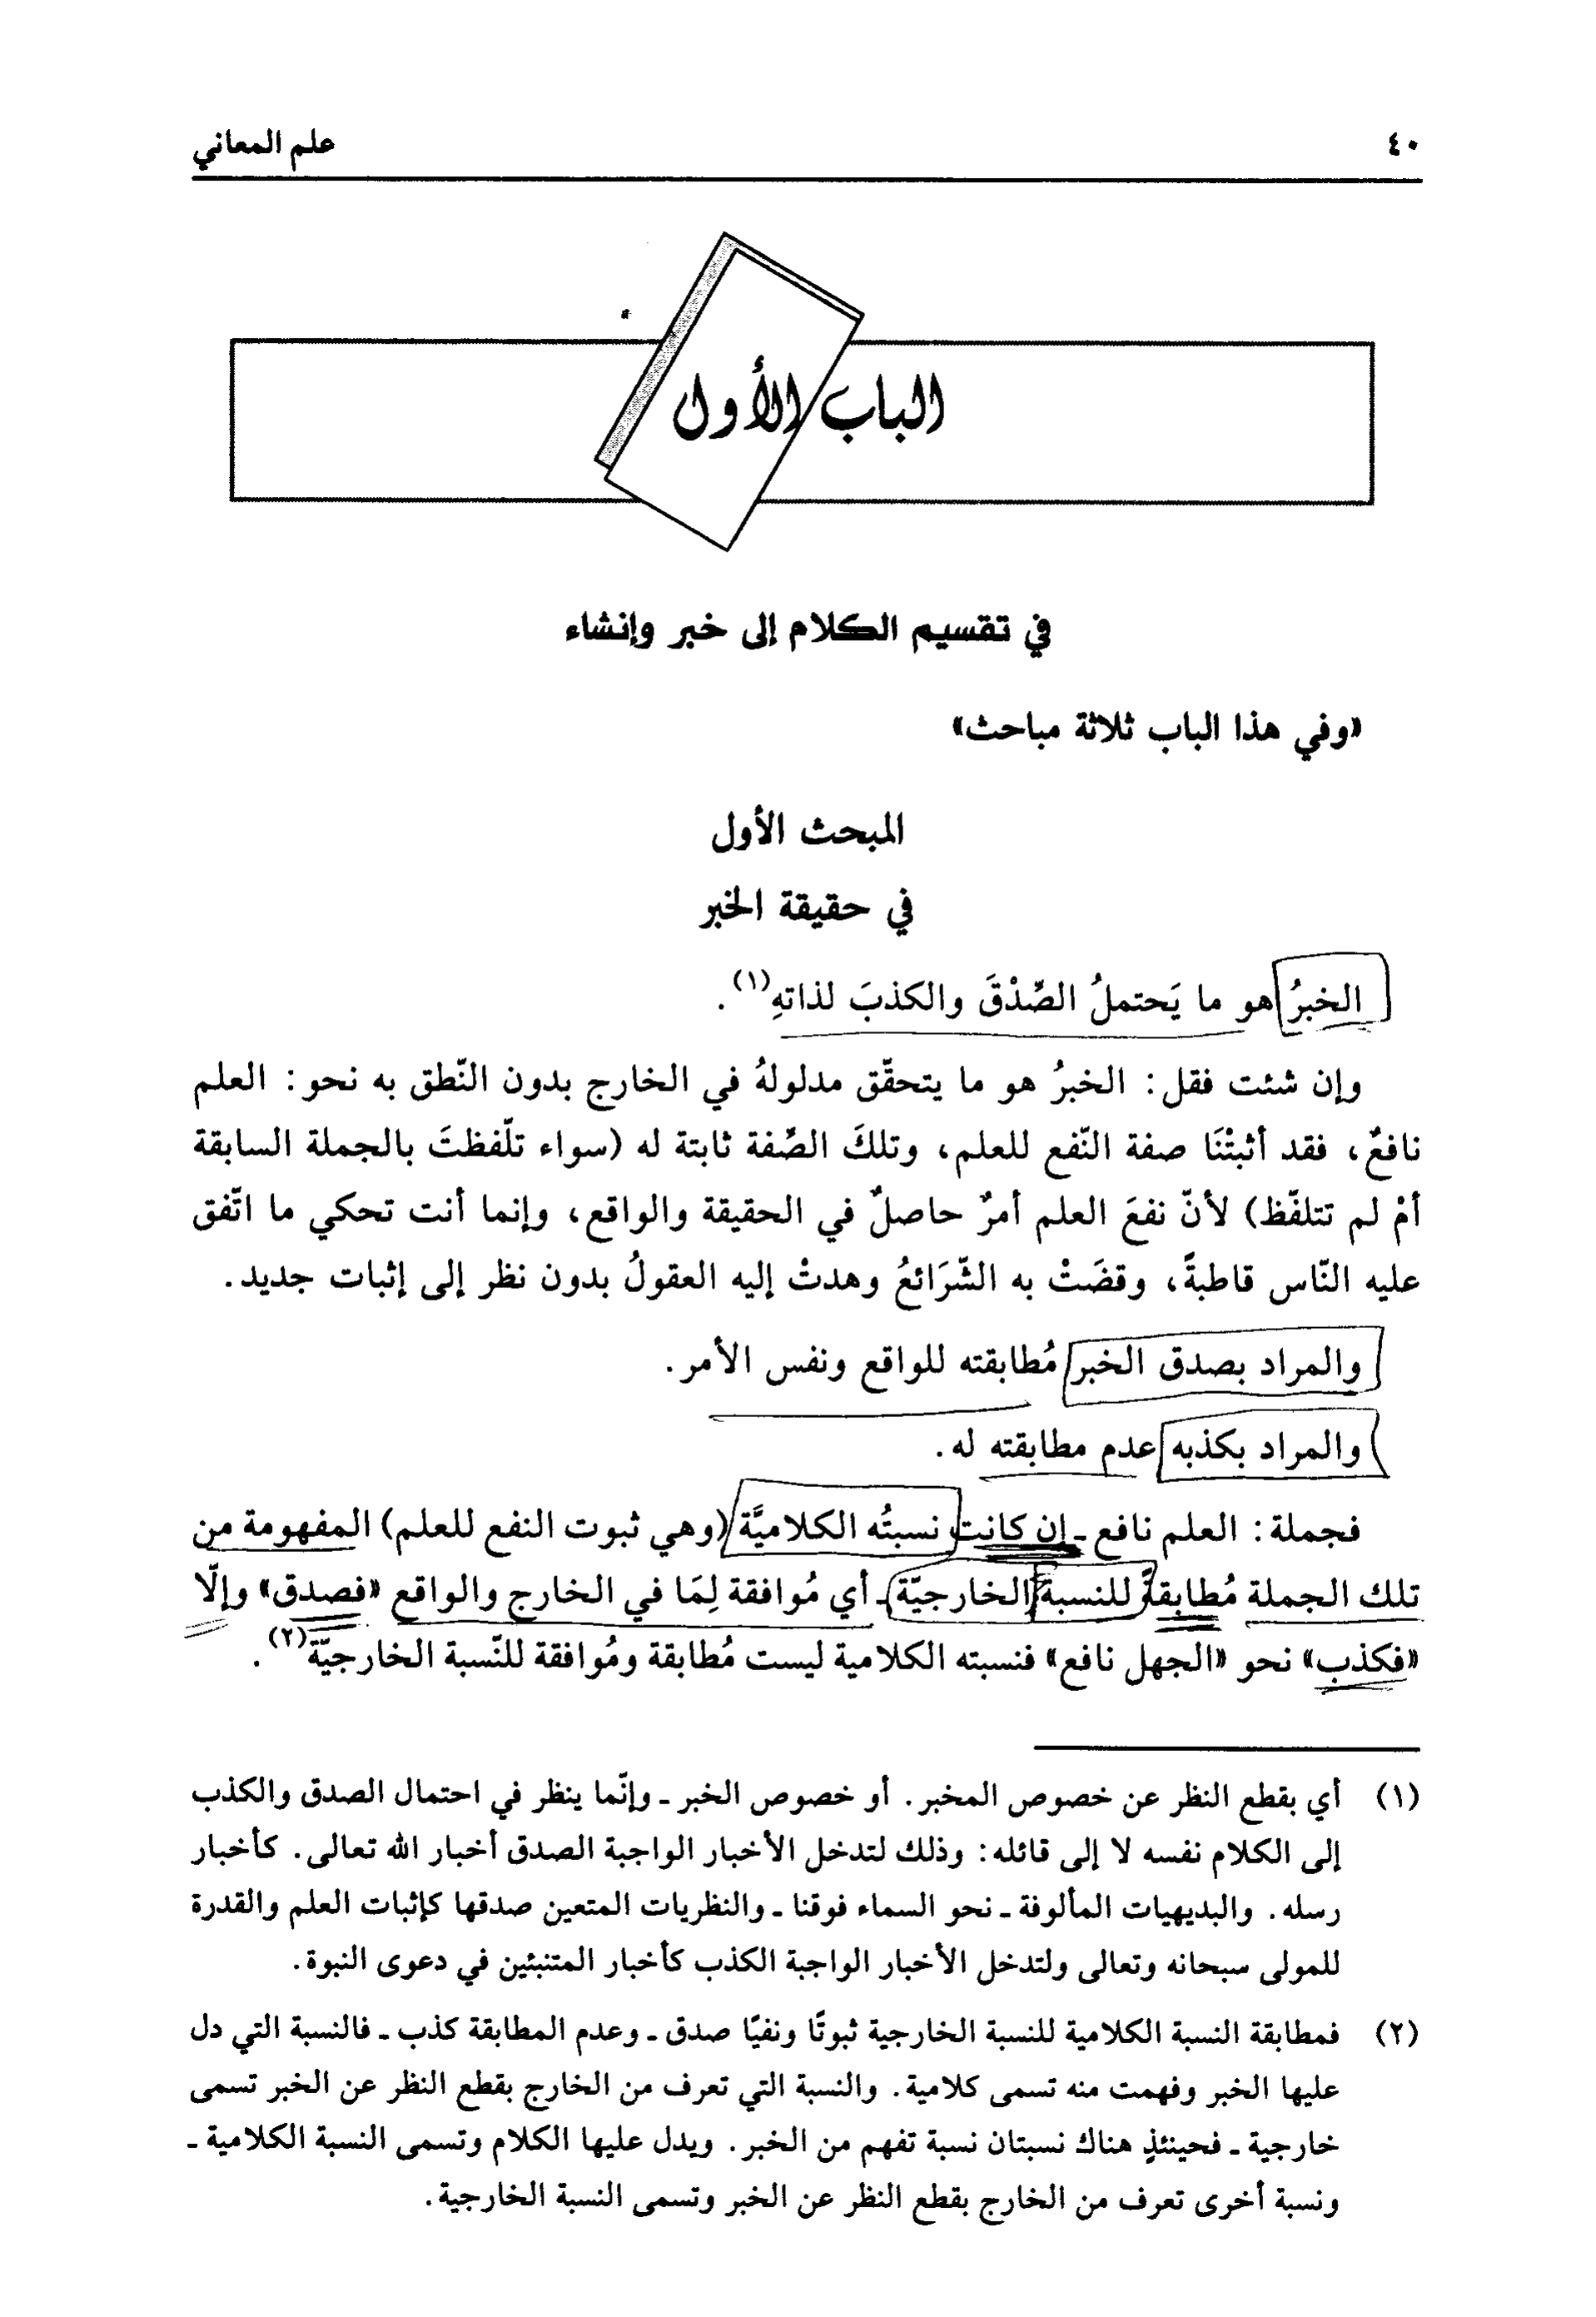 ٤٠
علم المعاني
الباب الأول
في تقسيم الكلام إلى خبر وإنشاء
«وفي هذا الباب ثلاثة مباحث»
المبحث الأول
في حقيقة الخبر
الخبرُ هو ما يَحتملُ الصِّدْقَ والكذبَ لذاتهِ(١).
وإن شئت فقل: الخبرُ هو ما يتحقّق مدلولهُ في الخارج بدون النّطق به نحو: العلم
نافعٌ، فقد أثبتْنَا صفة النّفع للعلم، وتلكَ الصِّفة ثابتة له (سواء تلّفظتَ بالجملة السابقة
أمْ لم تتلفّظ) لأنّ نفعَ العلم أمرٌ حاصلٌ في الحقيقة والواقع، وإنما أنت تحكي ما اتّفق
عليه النّاس قاطبةً، وقضَتْ به الشّرَائعُ وهدتْ إليه العقولُ بدون نظر إلى إثبات جديد.
والمراد بصدق الخبر مُطابقته للواقع ونفس الأمر.
والمراد بكذبه عدم مطابقته له.
فجملة: العلم نافع ـ إن كانت نسبتُه الكلاميَّة (وهي ثبوت النفع للعلم) المفهومة من
تلك الجملة مُطابقةً للنسبة الخارجيّة ـ أي مُوافقة لِمَا في الخارج والواقع «فصدق» وإلّا
«فكذب» نحو «الجهل نافع» فنسبته الكلامية ليست مُطابقة ومُوافقة للنّسبة الخارجيّة(٢).
(١) أي بقطع النظر عن خصوص المخبر. أو خصوص الخبر ـ وإنّما ينظر في احتمال الصدق والكذب
إلى الكلام نفسه لا إلى قائله: وذلك لتدخل الأخبار الواجبة الصدق أخبار الله تعالى. كأخبار
رسله. والبديهيات المألوفة ـ نحو السماء فوقنا ـ والنظريات المتعين صدقها كإثبات العلم والقدرة
للمولى سبحانه وتعالى ولتدخل الأخبار الواجبة الكذب كأخبار المتنبئين في دعوى النبوة.
(٢) فمطابقة النسبة الكلامية للنسبة الخارجية ثبوتًا ونفيًا صدق ـ وعدم المطابقة كذب ـ فالنسبة التي دل
عليها الخبر وفهمت منه تسمى كلامية. والنسبة التي تعرف من الخارج بقطع النظر عن الخبر تسمى
خارجية ـ فحينئذٍ هناك نسبتان نسبة تفهم من الخبر. ويدل عليها الكلام وتسمى النسبة الكلامية ـ
ونسبة أخرى تعرف من الخارج بقطع النظر عن الخبر وتسمى النسبة الخارجية.